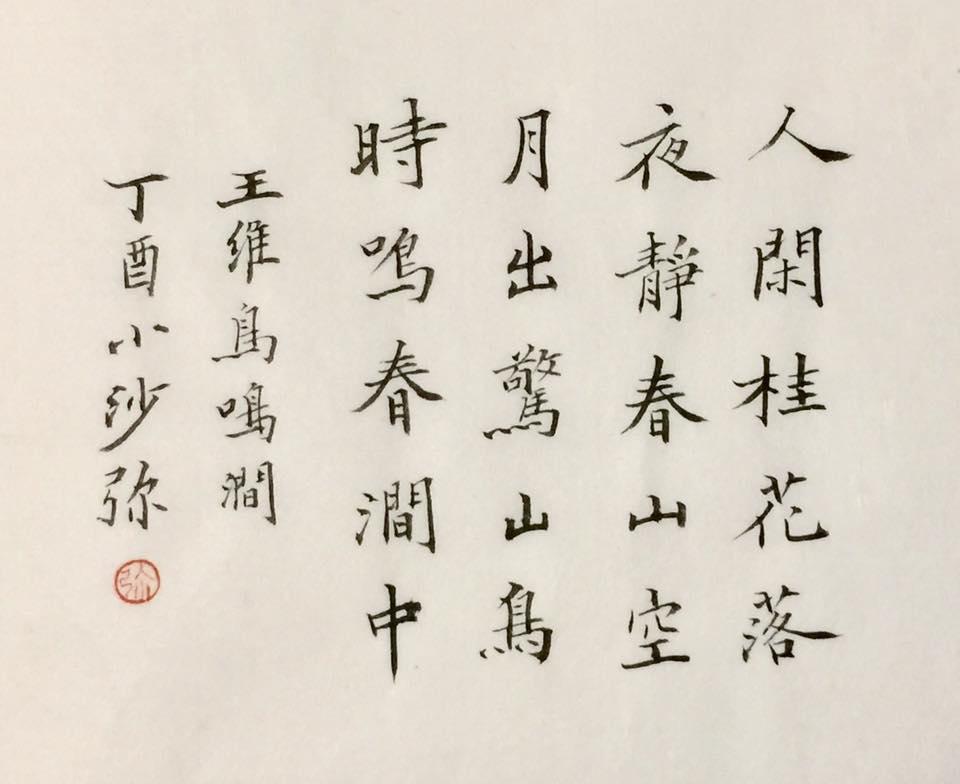 人閑桂花落
夜靜春山空
月出驚山鳥
時鳴春澗中
王維鳥鳴澗
丁酉小沙弥
弥